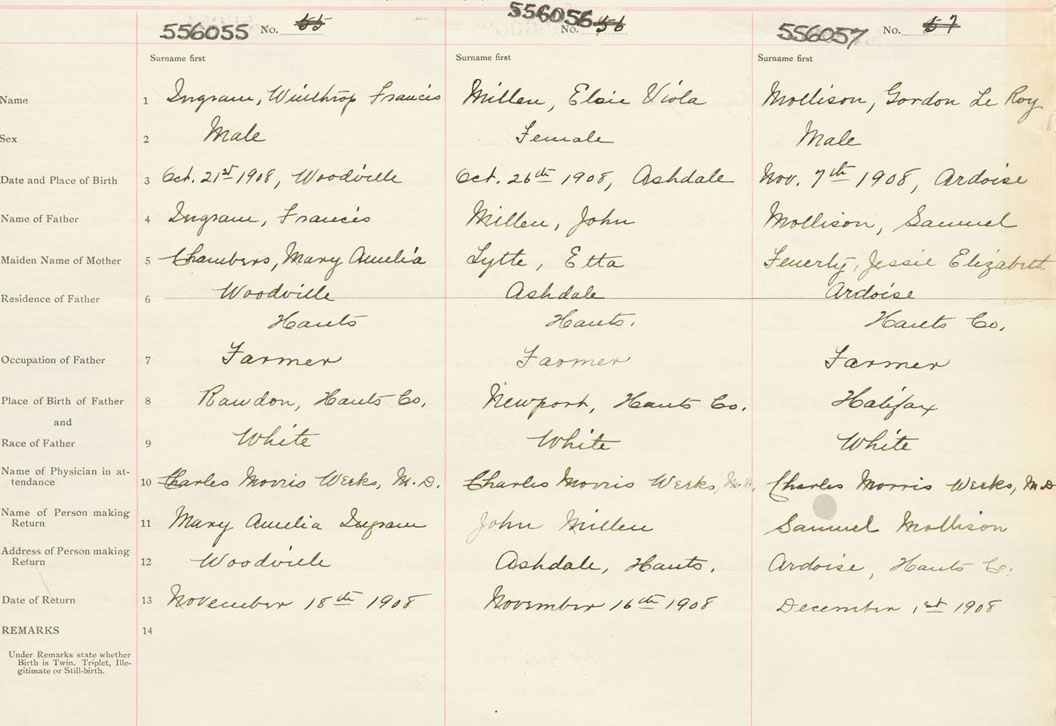 556055 No. 55 556056 No. 56 556057 No. 57
Surname first Surname first Surname first
Name 1 Ingram, Winthrop Francis Millen, Elsie Viola Mollison, Gordon Le Roy
Sex 2 Male Female Male
Date and Place of Birth 3 Oct. 21st 1908, Woodville Oct. 26th 1908, Ashdale Nov. 7th 1908, Ardoise
Name of Father 4 Ingram, Francis Millen, John Mollison, Samuel
Maiden Name of Mother 5 Chambers, Mary Amelia Lytte, Etta Fenerty, Jessie Elizabeth
Residence of Father 6 Woodville Ashdale Ardoise
Hants Hants. Hants Co.
Occupation of Father 7 Farmer Farmer Farmer
Place of Birth of Father 8 Rawdon, Hants Co. Newport, Hants Co. Halifax
and
Race of Father 9 White White White
Name of Physician in at-
tendance 10 Charles Morris Weeks, M.D. Charles Morris Weeks, M.D. Charles Morris Weeks, M.D
Name of Person making
Return 11 Mary Amelia Ingram John Millen Samuel Mollison
Address of Person making
Return 12 Woodville Ashdale, Hants. Ardoise, Hants Co.
Date of Return 13 November 18th 1908 November 16th 1908 December 1st 1908
REMARKS 14
Under Remarks state whether
Birth is Twin, Triplet, Ille-
gitimate or Still-birth.